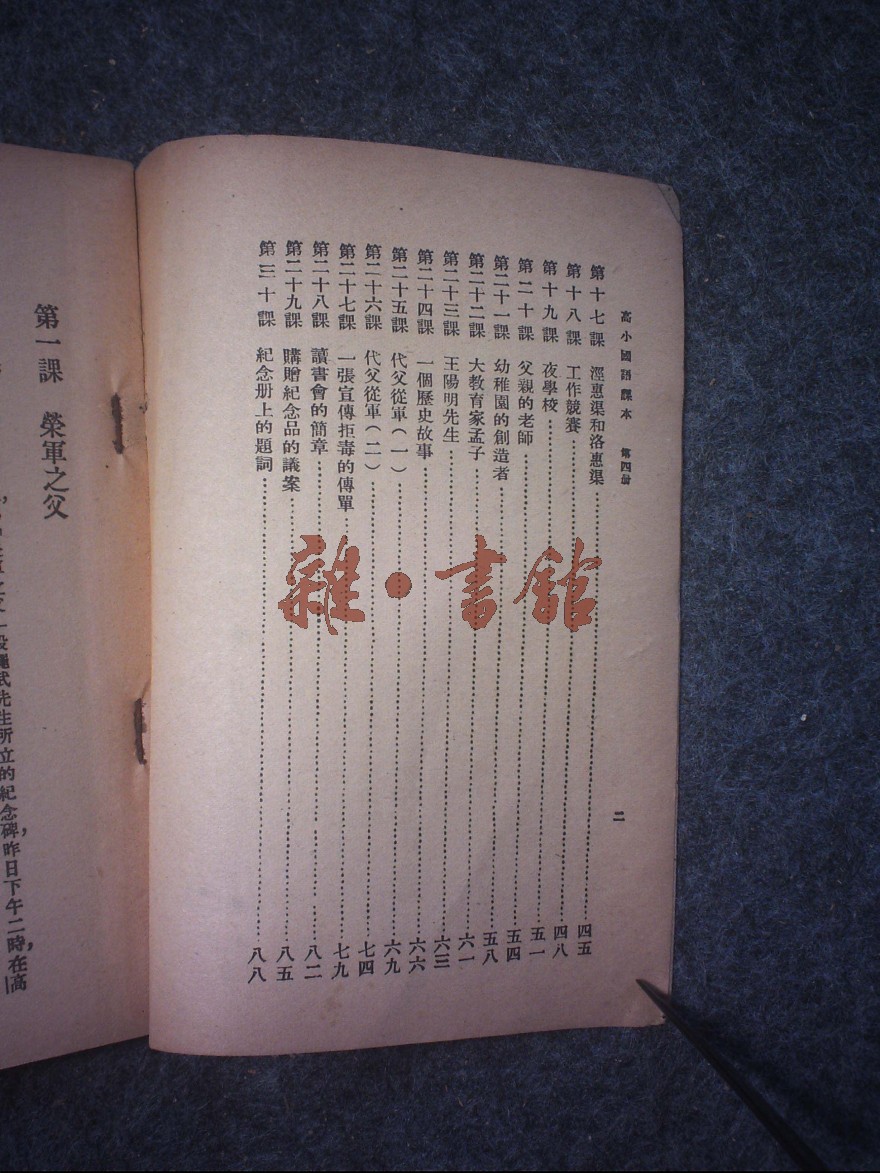 高小國語課本　第四册
二
第十七課　涇惠渠和洛惠渠……四五
第十八課　工作競賽……四八
第十九課　夜學校……五一
第二十課　父親的老師……五四
第二十一課　幼稚園的創造者……五八
第二十二課　大教育家孟子……六一
第二十三課　王陽明先生……六三
第二十四課　一個歷史故事……六六
第二十五課　代父從軍(一)……六九
第二十六課　代父從軍(二)……七四
第二十七課　一張宣傳拒毒的傳單……七九
第二十八課　讀書會的簡章……八二
第二十九課　購贈紀念品的議案……八五
第三十課　紀念册上的題詞……八八
雜·書館
第一課　榮軍之父
先生所立的紀念碑,昨日下午二時,在高